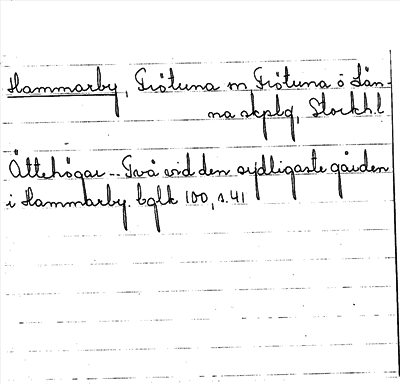 Hammarby, Frötuna m Frötuna ö Län-
na skplg, Stockh.l
Ättehögar.. Två vid den sydligaste gården
i Hammarby. bglk 100, s. 41